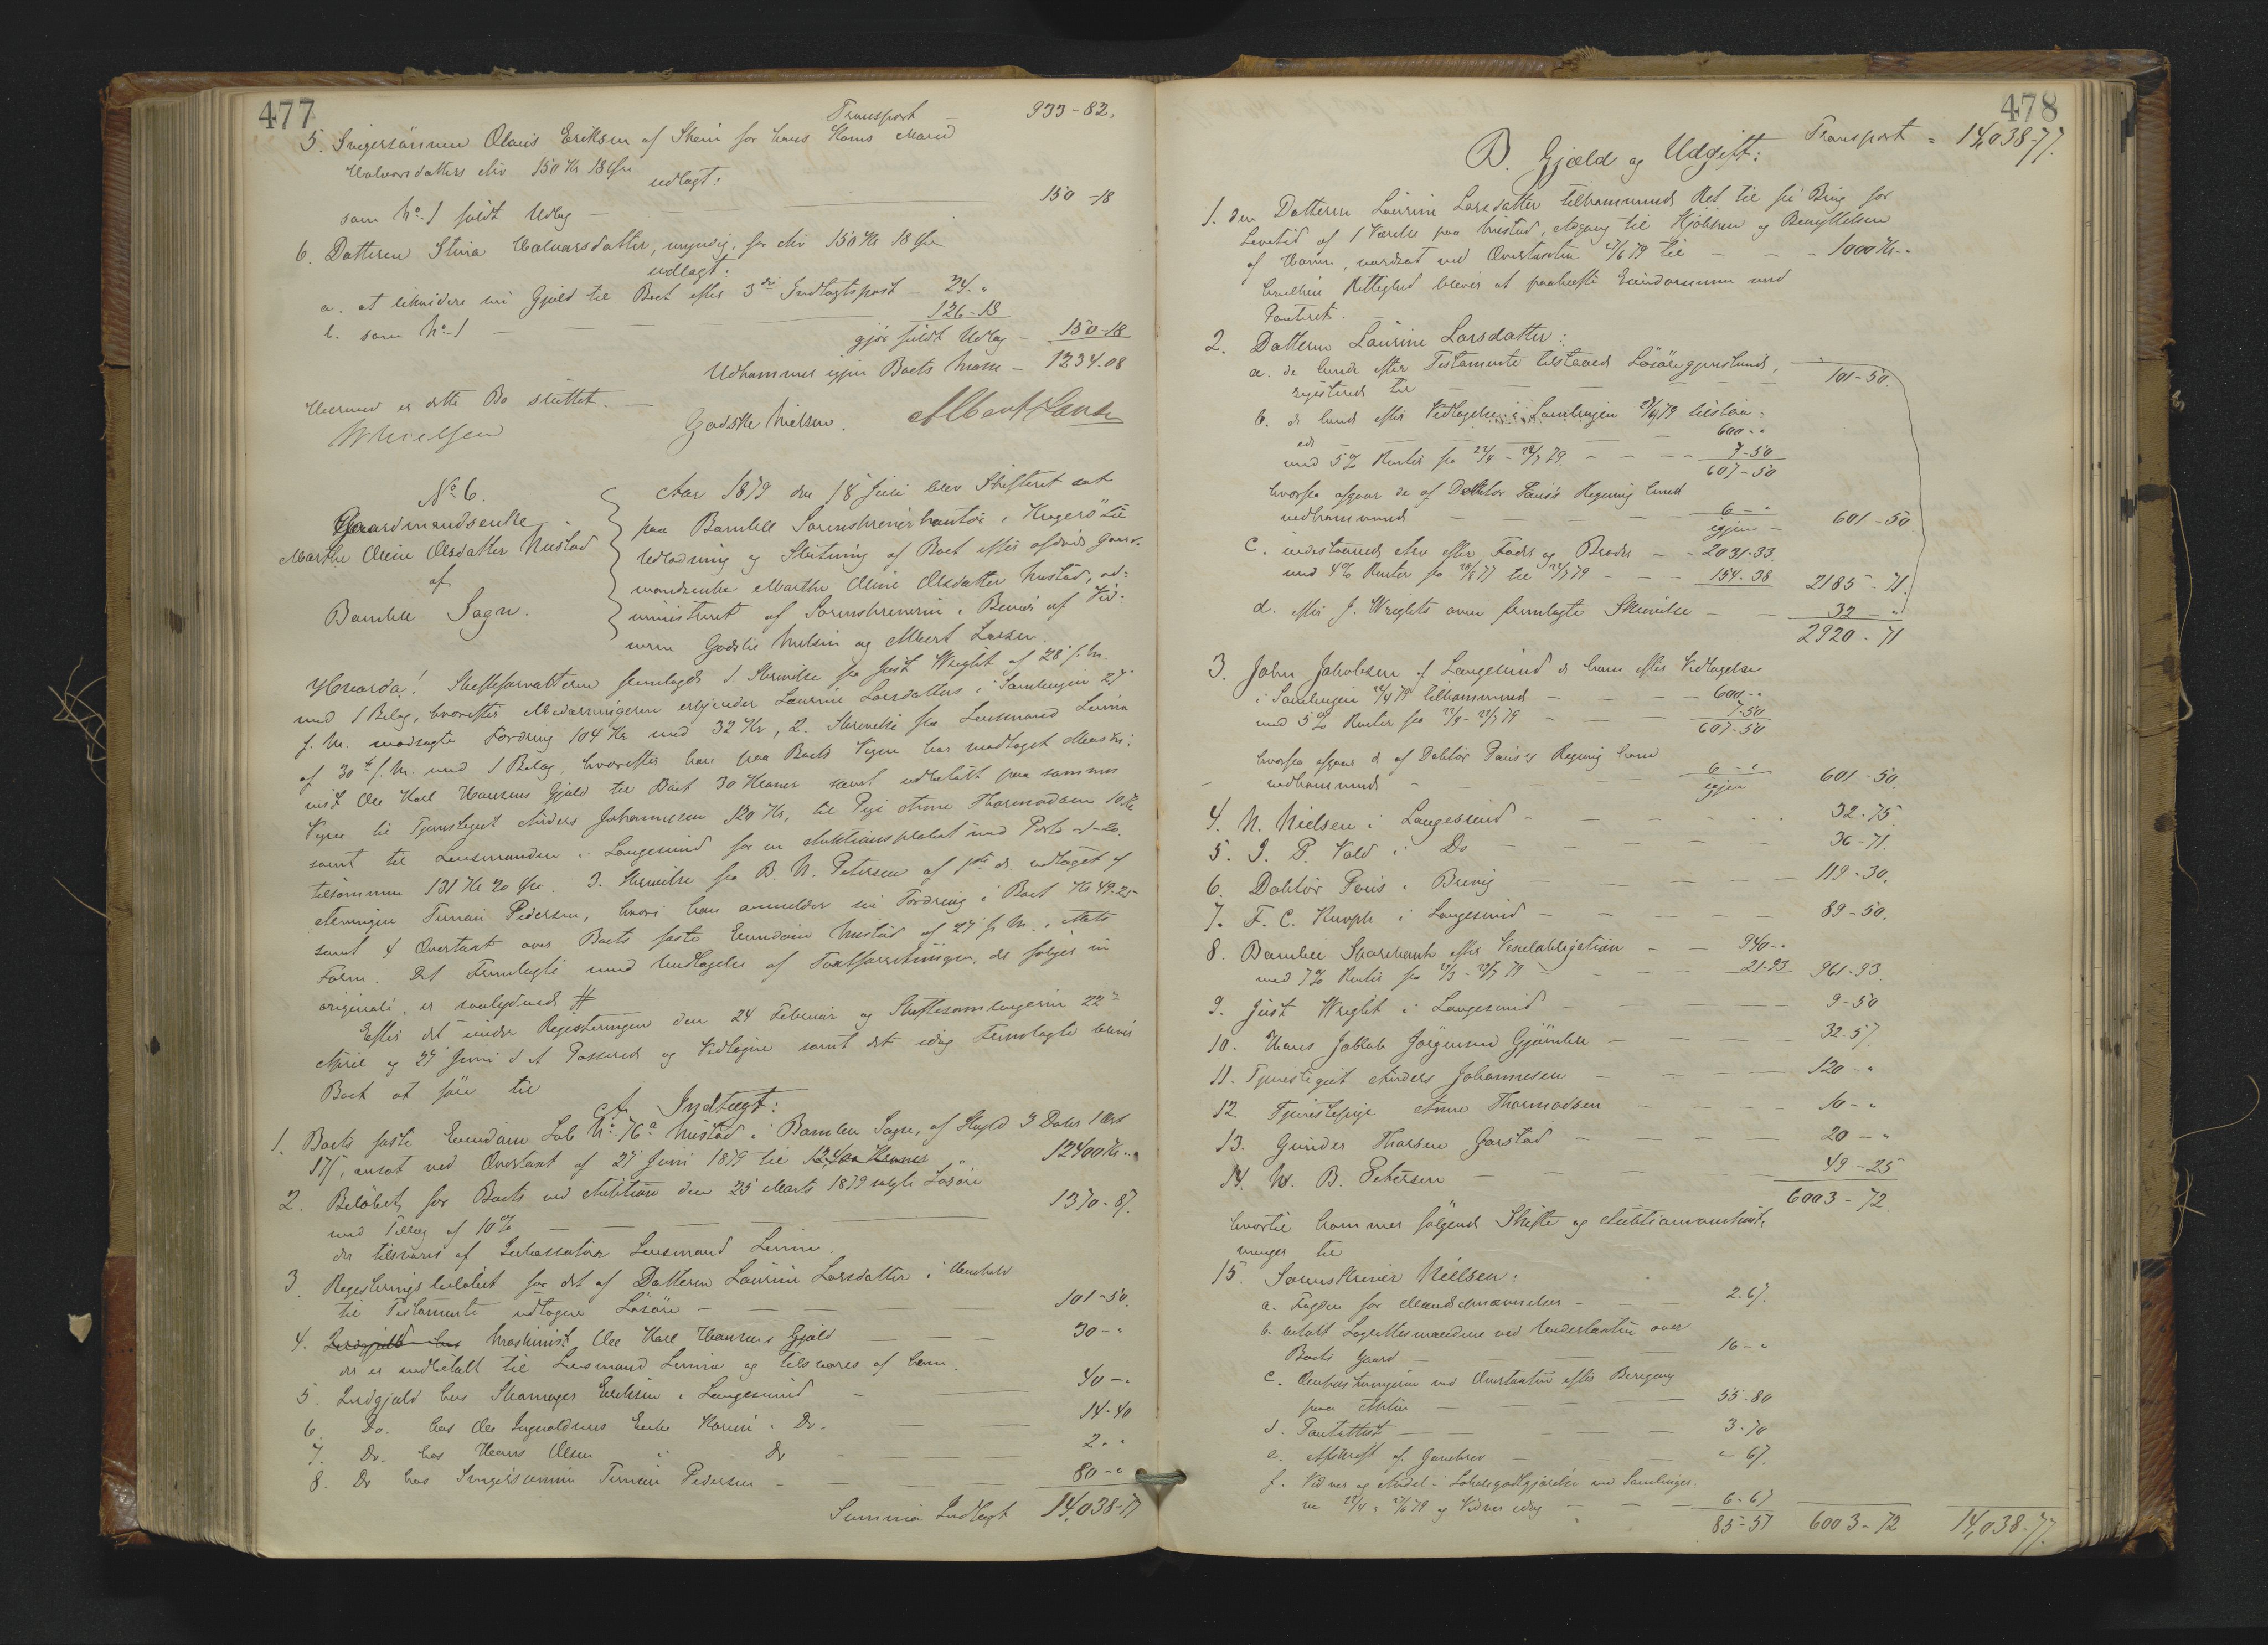 477
Transport – 933-82.
5. Svigersönnen Olaus Eriksen af Skien for hans Kones Maren
Halvorsdatters Arv 150 Kr 18 Øre
udlagt:
som No 1 fuldt Udlæg – 150-18
6. Datteren Stina Halvorsdatter, umyndig, for Arv 150 Kr 18 Øre
udlagt:
a. at likvidere sin Gjæld til Boet efter 3die Indtægtspost – 24 "
b. som No 1 – 126-18
gjör fuldt Udlæg – 150-18
Udkommer igjen Boets Masse – 1234.08
Hermed er dette Bo sluttet. –
NNielsen Godske Nielsen. Albert Larsen
No 6.
Gaardmandsenke
Marthe Oline Olsdatter Nustad
af
Bamble Sogn.
Aar 1879 den 18 Juli blev Skifteret sat
paa Bamble Sorenskriverkontor i Kragerö til
Udlodning og Slutning af Boet efter afdøde Gaard-
mandsenke Marthe Oline Olsdatter Nustad, ad-
ministreret af Sorenskriveren i Beværs af Vid-
nerne Godske Nielsen og Albert Larsen.
Hvorda! Skifteforvalteren fremlagde 1. Skrivelse fra Just Wright af 28 f. M.
med 1 Bilag, hvorefter Medarvingerne erkjender Laurine Larsdatters i Samlingen 27
f. M. modsagte Fordring 104 Kr med 32 Kr, 2. Skrivelse fra Lensmand Linna
af 30te f. M. med 1 Bilag, hvorefter han paa Boets Vegne har modtaget Maski-
nist Ole Karl Hansens Gjæld til Boet 30 Kroner samt udbetalt paa sammes
Vegne til Tjenestegut Anders Johannesen 120 Kr, til Pige Anne Thormodsen 10 Kr
samt til Lensmanden i Langesund for en Auktionsplakat med Porto -1-20.
tilsammen 131 Kr 20 Øre. 3. Skrivelse fra B. N. Petersen af 1ste ds. udtaget af
Arvingen Ternan Pedersen, hvori han anmelder sin Fordring i Boet Kr 49.25
samt 4 Overtaxt over Boets faste Eiendom Nustad af 27 f. M. i Akts
Form. Det Fremlagte med Undtagelse af Taxtforretningen, der følger in
originali, er saalydende #
Efter det under Registreringen den 24 Februar og Skiftesamlingerne 22de
April og 27 Juni d. A. Passerede og Vedtagne samt det idag Fremlagte bliver
Boet at före til
A. Indtægt:
1. Boets faste Eiendom Løb No 76a Nustad i Bamble Sogn, af Skyld 3 Daler 1 Ort
17 ſ, ansat ved Overtaxt af 27 Juni 1879 til 12,400 Kroner 12400 Kr.-"
2. Belöbet for Boets ved Auktion den 25 Marts 1879 solgte Lösöre
med Tillæg af 10% – 1370-87.
der tilsvares af Inkassator Lensmand Linna.
3. Registeringsbelöbet for det af Datteren Laurine Larsdatter i Henhold
til Testamente udtagne Lösöre – 101-50.
4. Indgjæld hos Maskinist Ole Karl Hansens Gjæld – 30-"
der er indbetalt til Lensmand Linna og tilsvares af ham.
5. Indgjæld hos Skomager Erichsen i Langesund – 40-"
6. Do. hos Ole Ingvaldsens Enke Karen i Do – 14-40
7. Do. hos Hans Olsen i Do – 2-"
8. Do hos Svigersönnen Ternan Pedersen – 80-"
Summa Indtægt 14,038-77
478
Transport = 14,038-77.
B. Gjæld og Udgift:
1. den Datteren Laurine Larsdatter tilkommende Ret til fri Brug for
Levetid af 1 Værelse paa Nustad, Adgang til Kjökken og Benyttelsen
af Haven, værdsat ved Overtaxten 27/6 79 til – – – 1000 Kr-"
hvilken Rettighed bliver at paahefte Eiendommen med
Panteret.
2. Datteren Laurine Larsdatter:
a. de hende efter Testamente tilstaaede Lösöregjenstande,
registreret til – 101-50.
b. de hende efter Vedtagelse i Samlingen 22/4 79 tilstaa-
ede – 600-"
med 5% Renter fra 22/4 - 22/7 79. – 7-50
607-50
hvorfra afgaar de af Doktor Pauss Regning hende
vedkommende – 6-"
igjen – 601-50
c. indestaaende Arv efter Fader og Broder – 2031.33.
med 4% Renter fra 28/8 77 til 22/7 79 – 154.38 2185-71.
d. efter J. Wrights over fremlagte Skrivelse – 32-"
2920-71
3. John Jakobsen af Langesund de ham efter Vedtagelse
i Samlingen 22/4 79 tilkommende – 600-"
med 5% Renter fra 22/4 - 22/7 79 – 7-50
607-50
hvorfra afgaar de af Doktor Pauses Regning ham
vedkommende – 6-"
igjen 601-50.
4. N. Nielsen i Langesund – 32.75.
5. J. P. Vold i Do – 36-71.
6. Doktor Paus i Brevig – 119-30.
7. F. C. Knoph i Langesund – 89-50.
8. Bamble Sparebank efter Vexelobligation – 940-"
med 7% Renter fra – 22/7 79 – 21-93 961-93.
9. Just Wright i Langesund – 9-50
10. Hans Jakob Jörgensen Gjömle – 32-57.
11. Tjenestegut Anders Johannesen – 120-"
12. Tjenestepige Anne Thormodsen – 10-"
13. Gunder Thorsen Garstad – 20-"
14. N. B. Petersen – 49-25
6003-72.
hvortil kommer følgende Skifte og Auktionsomkost-
ninger til
15. Sorenskriver Nielsen:
a. Fogden for Mandsopnævnelser – 2.67.
b. betalt Lagrettesmændene ved Undertaxten over
Boets Gaard – 16-"
c. Omkostningerne ved Overtaxten efter Beregning
paa Akten – 55-80
d. Pantattest – 3-70
e. Afskrift af Gavebrev – "-67.
f. Vidner og Andel i Lokalegodtgjörelse ved Samlinger-
ne 22/4, 27/6 79 og Vidner idag – 6-67
85-51 6003-72 14,038-77.